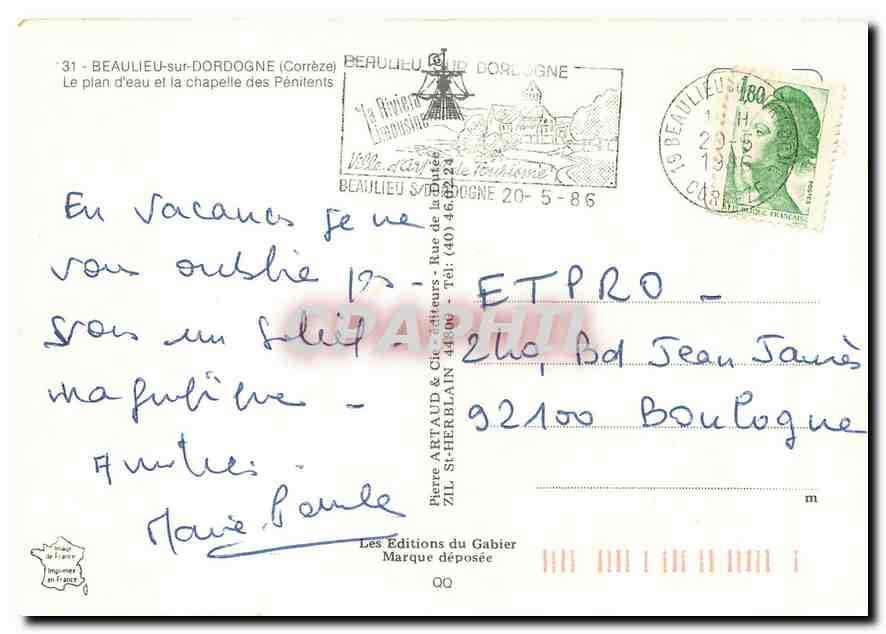 31 - BEAULIEU-sur-DORDOGNE (Corrèze)
Le plan d'eau et la chapelle des Pénitents
BEAULIEU SUR DORDOGNE
"la Riviera
Limousine"
Ville d'Art de Tourisme
BEAULIEU S/DORDOGNE 20-5-86
19 BEAULIEU
20-5
1986
1,80
POSTES
REPUBLIQUE FRANÇAISE
En vacances je ne
vous oublie pas -
sous un soleil
magnifique -
Amitiés -
Marie Paule
Pierre ARTAUD & Cie - éditeurs - Rue de la
ZIL St-HERBLAIN 44800 - Tél: (40) 46.02.24
CPAPHIL
ETPRO -
240, Bd Jean Jaurès
92100 Boulogne
m
Les Editions du Gabier
Marque déposée
QQ
Image
de France
Imprimée
en France